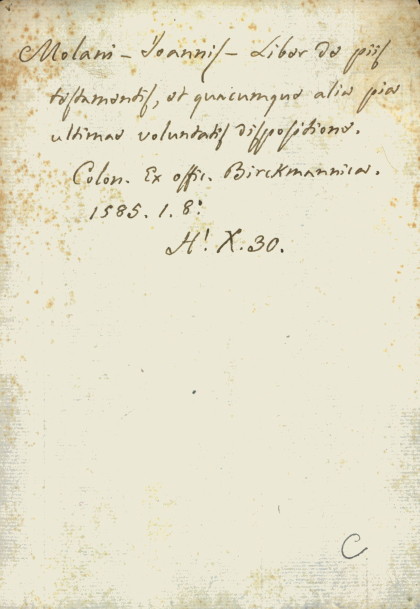 Molani - Joannis - Liber de piis
testamentis, et quacumque alia pia
ultimae voluntatis dispositione.
Colon. Ex offic. Birckmannica.
1585. 1. 8º
H! X. 30.
C